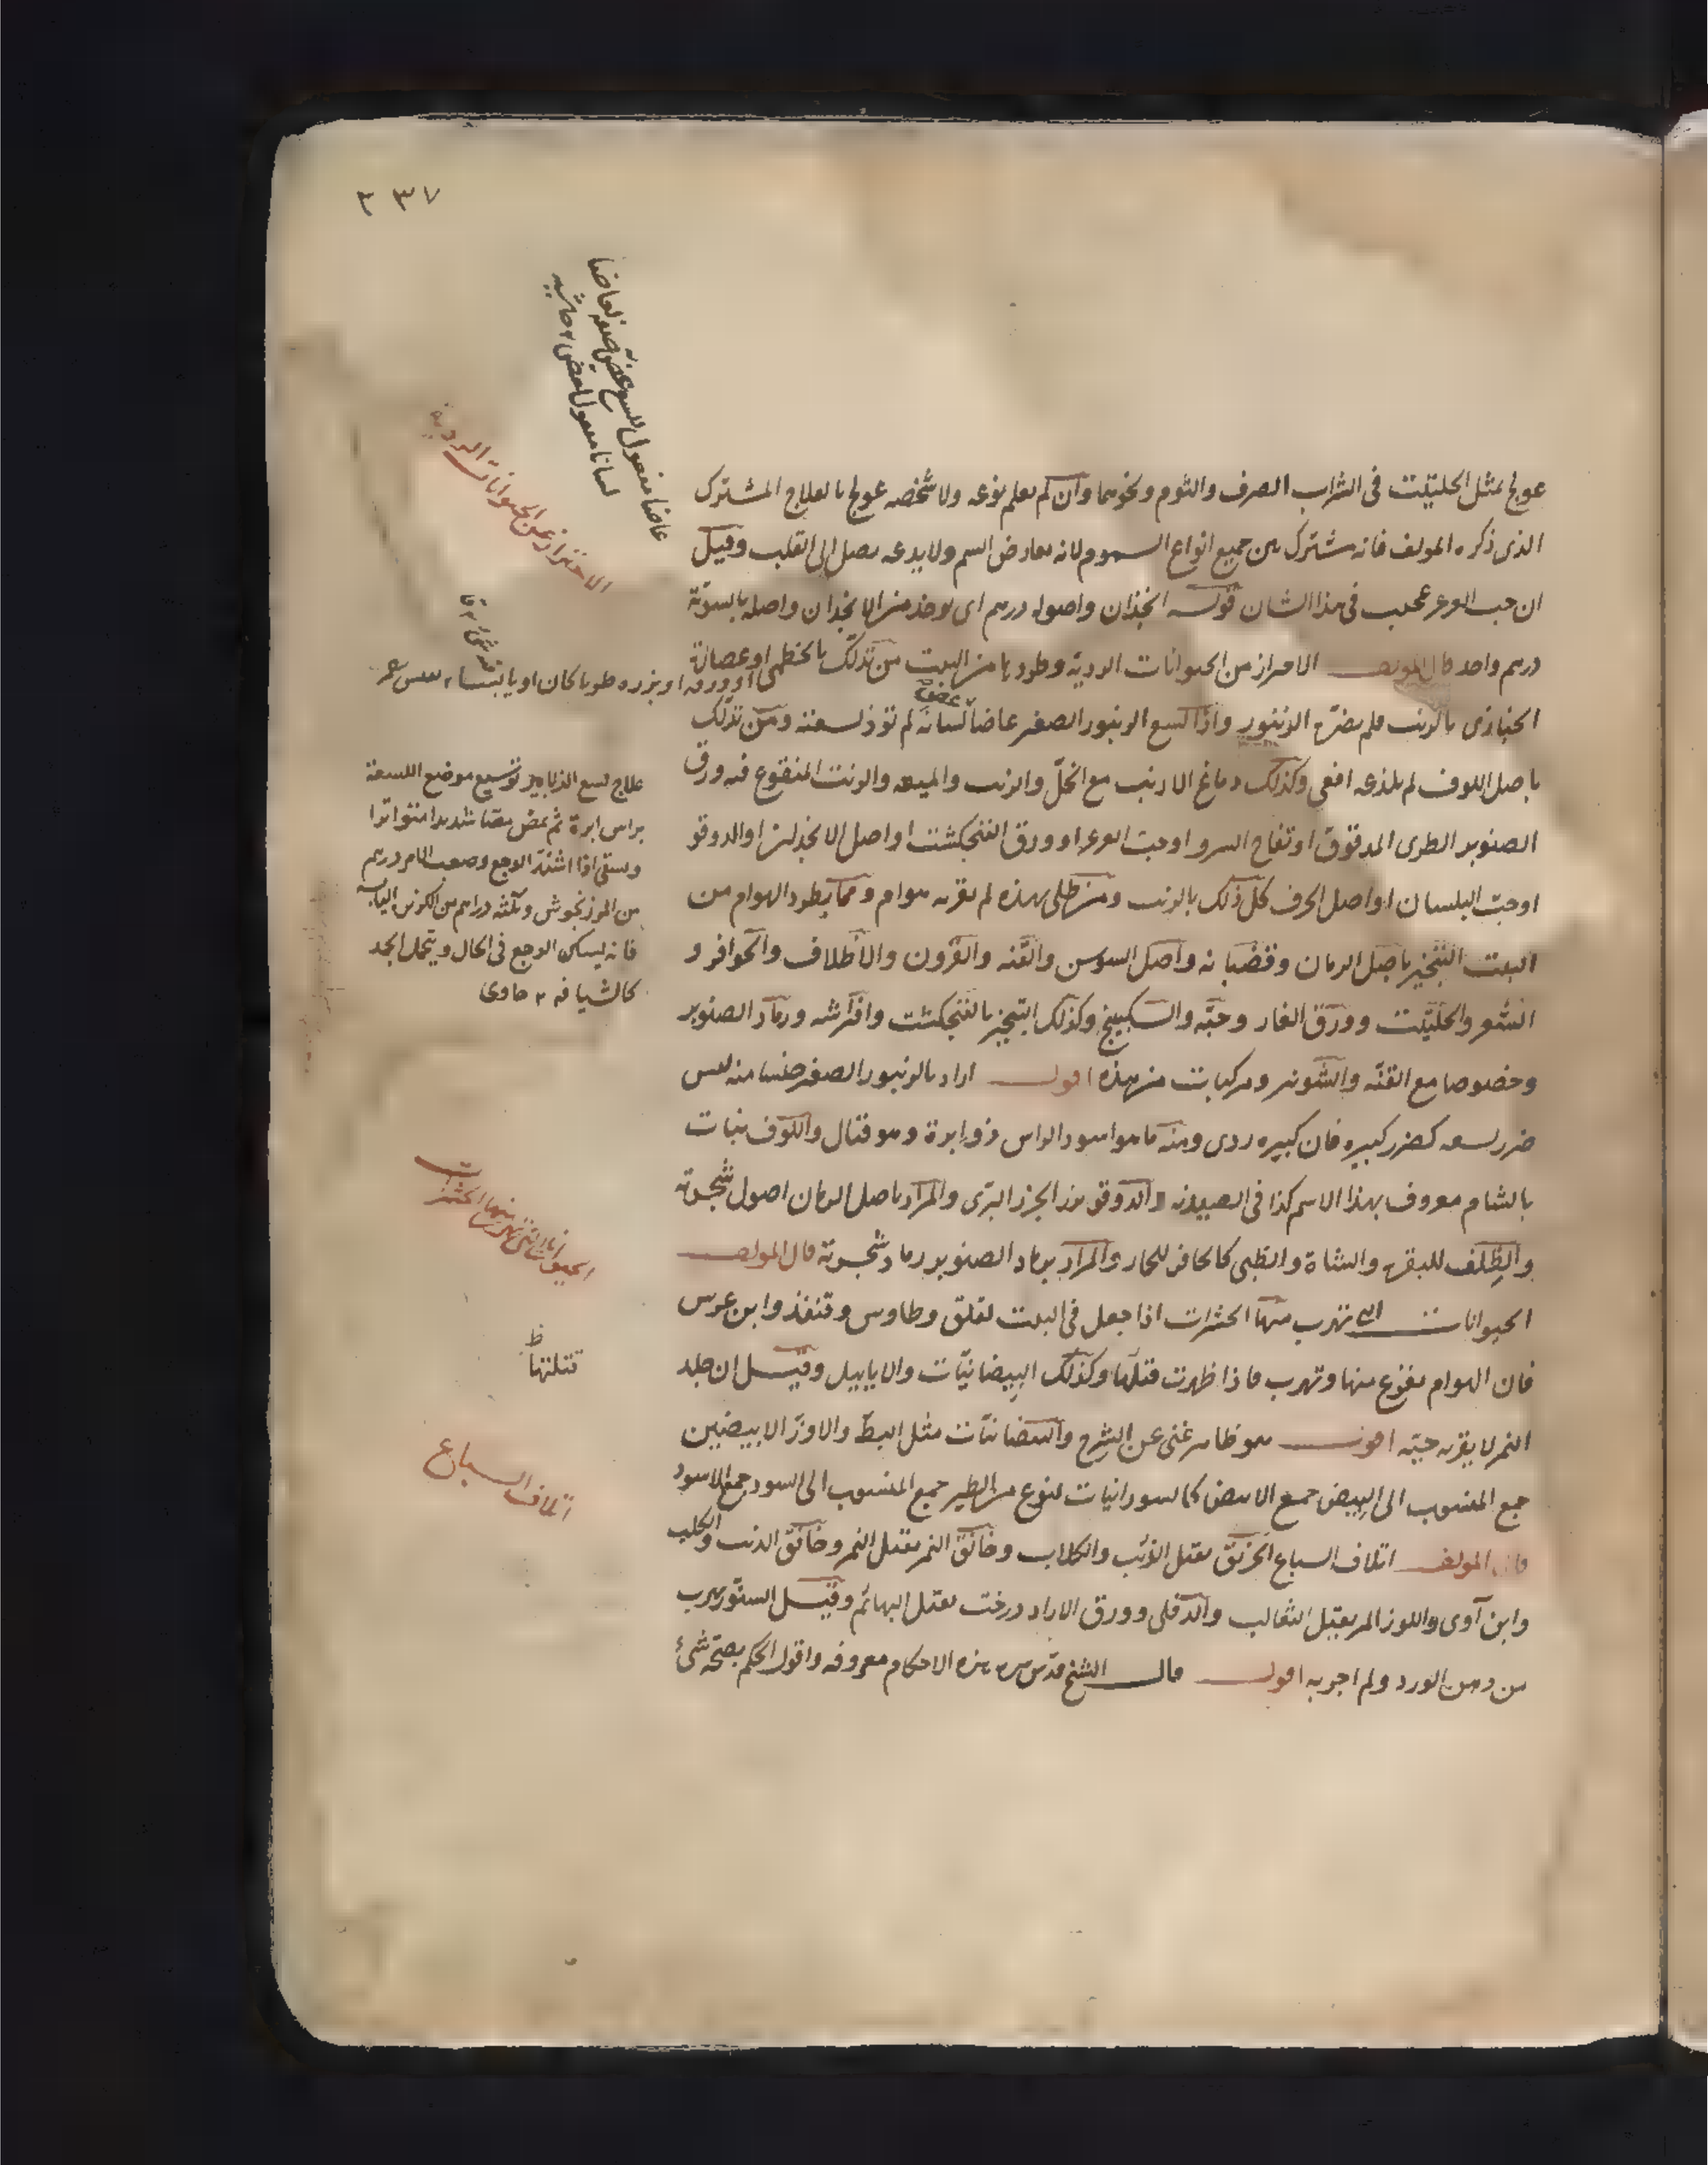 ٣٣٧
عاضا مفعول للسع عض صفة لعاضا
لسانا مفعول لعض ٢ حاشيه
الاحتراز عن الحيوانات الردية
عولج بمثل الحلتيت فى الشراب الصرف والثوم ونحوهما وان لم يعلم نوعه ولا شخصه عولج بالعلاج المشترك
الذى ذكره المولف فانه مشترك بين جميع انواع السموم ولانه يعارض السم ولا يدعه يصل الى القلب وقيل
ان حب العرعر عجيب فى هذا الشان قوله انجذان واصوله درهم اى يوخذ من الانجذان واصله بالسوية
درهم واحد قال المولف الاحتراز من الحيوانات الردية وطردها من البيت من تدلك بالخطمى او عصارة
او ورقه او بزره رطبا كان او يابسا
الخبازى بالزيت فلم يضره الزنبور واذا لسع الزنبور الصغير عاضا لسانه لم تؤذ لسعته ومن تدلك
باصل اللوف لم يلدغه افعى وكذلك دماغ الارنب مع الخل والزيت والميعه والزيت المنقوع فيه ورق
الصنوبر الطرى المدقوق او تفاح السرو او حب العرعر او ورق الفنجكشت او اصل الانجذان او الدوقو
او حب البلسان او اصل الحرف كل ذلك بالزيت ومن طلى بهذه لم يقربه هوام ومما يطرد الهوام من
البيت التبخير باصل الرمان وقضبانه واصل السوسن والقنه والقرون والاظلاف والحوافر و
الشعر والحلتيت وورق الغار وحبه والسكبينج وكذلك التبخير بالفنجكشت وافتراشه ورماد الصنوبر
وخصوصا مع القنه والشونيز ومركبات من هذه اقول اراد بالزنبور الصغير جنسا منه ليس
ضرر لسعه كضرر كبيره فان كبيره ردى ومنه ما هو اسود الراس ذو ابرة وهو قتال واللوف نبات
بالشام معروف بهذا الاسم كذا فى الصيدنه والدوقو بزر الجزر البرى والمراد باصل الرمان اصول شجرته
والظلف للبقرة والشاة والظبى كالحافر للحمار والمراد برماد الصنوبر رماد شجرته قال المولف
الحيوانات التى تهرب منها الحشرات اذا جعل فى البيت لقلق وطاوس وقنفذ وابن عرس
فان الهوام يفزع منها وتهرب فاذا ظهرت قتلها وكذلك البيضانيات والايابيل وقيل ان جلد
النمر لا يقربه حية اقول هو ظاهر غنى عن الشرح والبيضانيات مثل البط والاوز الابيضين
جمع المنسوب الى البيض جمع الابيض كالسودانيات لنوع من الطير جمع المنسوب الى السود جمع الاسود
قال المولف اتلاف السباع الخربق يقتل الذئب والكلاب وخانق النمر يقتل النمر وخانق الذئب والكلب
وابن آوى واللوز المر يقتل الثعالب والدفلى وورق الازاد درخت يقتل البهائم وقيل السنور يهرب
من دهن الورد ولم اجربه اقول قال الشيخ قدس سره هذه الاحكام معروفه واقول الحكم بصحة شئ
علاج لسع الذنابير توسيع موضع اللسعة
براس ابرة ثم يمض مصا شديدا متواترا
ويسقى اذا اشتد الوجع وصعب الامر درهم
من المرزنجوش وثلثه دراهم من الكزبره اليابسه
فانه يسكن الوجع فى الحال ويتحمل الجمد
كالشيافه ٢ حاوى
الحيوانات التى تهرب منها الحشرات
قتلتها ظ
اتلاف السباع